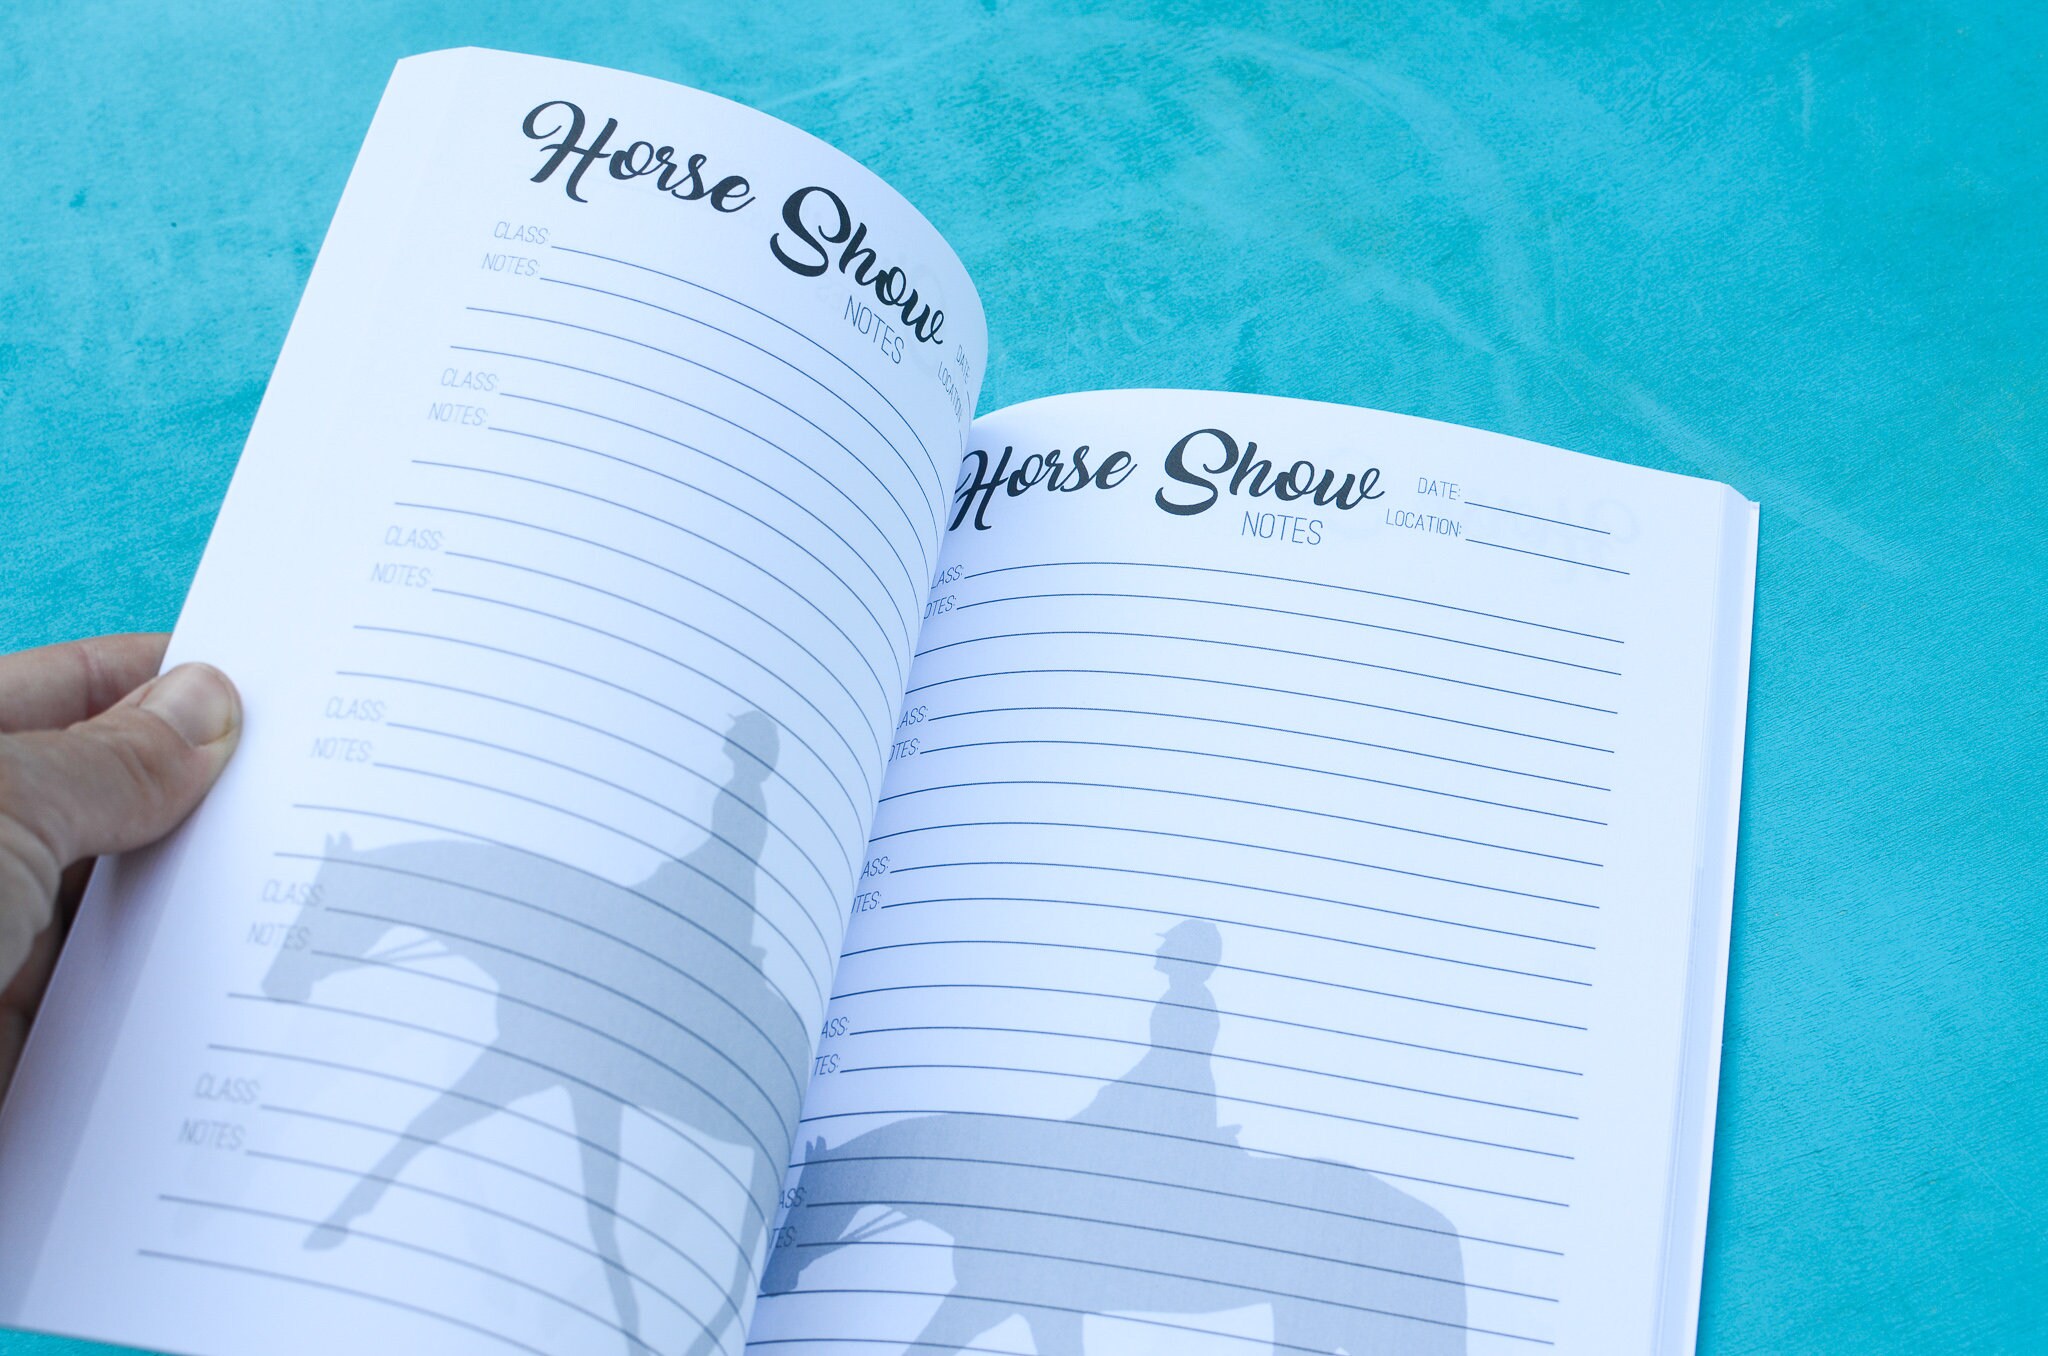 Horse Show
NOTES
DATE:
LOCATION:
CLASS:
NOTES:
CLASS:
NOTES:
CLASS:
NOTES:
CLASS:
NOTES:
CLASS:
NOTES:
CLASS:
NOTES:
Horse Show
NOTES
DATE:
LOCATION:
LASS:
OTES:
LASS:
OTES:
ASS:
TES:
ASS:
TES:
ASS:
TES: